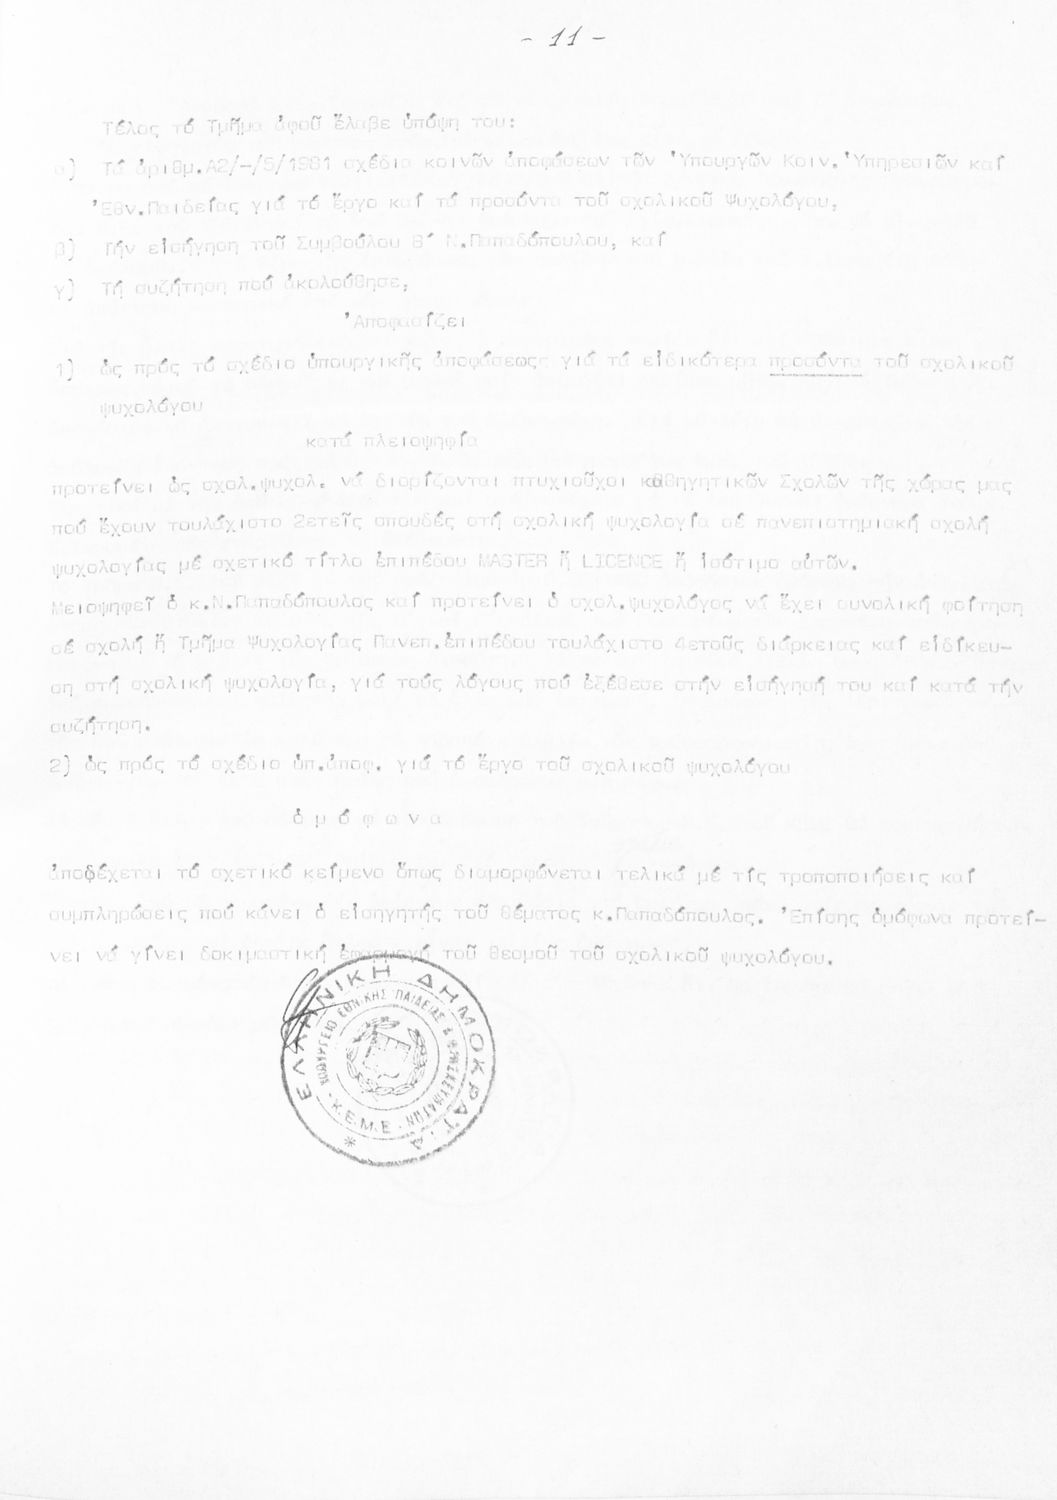 - 11 -
Τέλος τό Τμῆμα ἀφοῦ ἔλαβε ὑπόψη του:
α) Τά ἀριθμ.Α2/-/5/1981 σχέδια κοινῶν ἀποφάσεων τῶν Ὑπουργῶν Κοιν. Ὑπηρεσιῶν καί
Ἐθν.Παιδείας γιά τό ἔργο καί τά προσόντα τοῦ σχολικοῦ Ψυχολόγου,
β) Τήν εἰσήγηση τοῦ Συμβούλου Β΄ Ν.Παπαδόπουλου, καί
γ) Τή συζήτηση πού ἀκολούθησε,
Ἀποφασίζει
1) ὡς πρός τό σχέδιο ὑπουργικῆς ἀποφάσεως γιά τά εἰδικότερα προσόντα τοῦ σχολικοῦ
ψυχολόγου
κατά πλειοψηφία
προτείνει ὡς σχολ.ψυχολ. νά διορίζονται πτυχιοῦχοι καθηγητικῶν Σχολῶν τῆς χώρας μας
πού ἔχουν τουλάχιστο 2ετεῖς σπουδές στή σχολική ψυχολογία σέ πανεπιστημιακή σχολή
ψυχολογίας μέ σχετικό τίτλο ἐπιπέδου MASTER ἤ LICENCE ἤ ἰσότιμο αὐτῶν.
Μειοψηφεῖ ὁ κ.Ν.Παπαδόπουλος καί προτείνει ὁ σχολ.ψυχολόγος νά ἔχει συνολική φοίτηση
σέ σχολή ἤ Τμῆμα Ψυχολογίας Πανεπ.ἐπιπέδου τουλάχιστο 4ετοῦς διάρκειας καί εἰδίκευ-
ση στή σχολική ψυχολογία, γιά τούς λόγους πού ἐξέθεσε στήν εἰσήγησή του καί κατά τήν
συζήτηση.
2) ὡς πρός τό σχέδιο ὑπ.ἀποφ. γιά τό ἔργο τοῦ σχολικοῦ ψυχολόγου
ὁ μ ό φ ω ν α
ἀποδέχεται τό σχετικό κείμενο ὅπως διαμορφώνεται τελικά μέ τίς τροποποιήσεις καί
συμπληρώσεις πού κάνει ὁ εἰσηγητής τοῦ θέματος κ.Παπαδόπουλος. Ἐπίσης ὁμόφωνα προτεί-
νει νά γίνει δοκιμαστική ἐφαρμογή τοῦ θεσμοῦ τοῦ σχολικοῦ ψυχολόγου.
ΕΛΛΗΝΙΚΗ ΔΗΜΟΚΡΑΤΙΑ
ΥΠΟΥΡΓΕΙΟ ΕΘΝΙΚΗΣ ΠΑΙΔΕΙΑΣ & ΘΡΗΣΚΕΥΜΑΤΩΝ
Κ.Ε.Μ.Ε